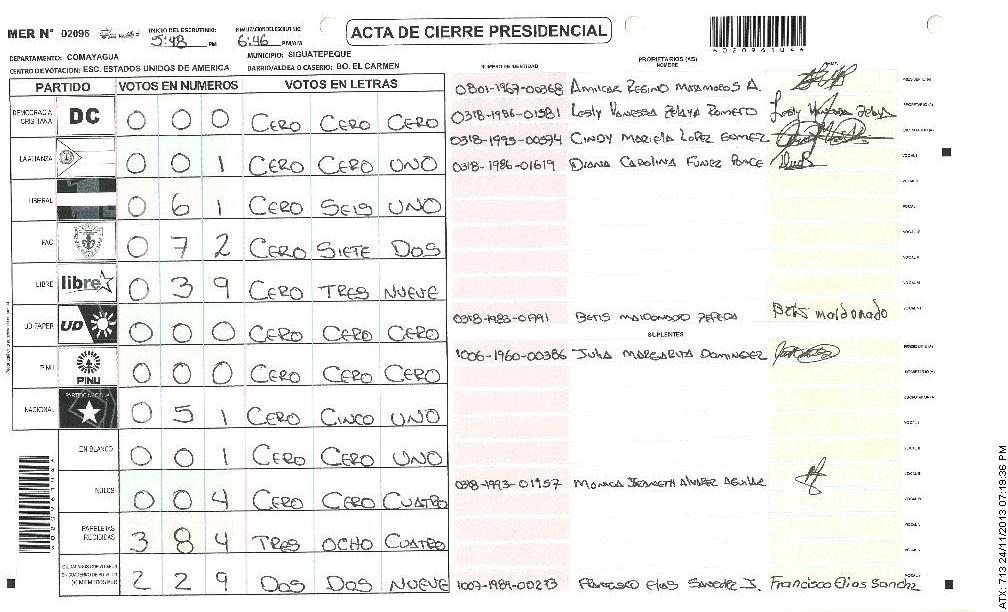 MER N° 02096 INICIO DEL ESCRUTINIO: 5:48 PM FINALIZACION DEL ESCRUTINIO: 6:46 PM/A/M
ACTA DE CIERRE PRESIDENCIAL
DEPARTAMENTO: COMAYAGUA MUNICIPIO: SIGUATEPEQUE
CENTRO DE VOTACION: ESC. ESTADOS UNIDOS DE AMERICA BARRIO/ALDEA O CASERIO: BO. EL CARMEN
NUMERO DE IDENTIDAD PROPIETARIOS (AS) NOMBRE
PARTIDO VOTOS EN NUMEROS VOTOS EN LETRAS
DEMOCRACIA CRISTIANA DC 0 0 0 CERO CERO CERO
LA ALIANZA 0 0 1 CERO CERO UNO
LIBERAL 0 6 1 CERO SEIS UNO
PAC 0 7 2 CERO SIETE DOS
LIBRE libre 0 3 9 CERO TRES NUEVE
UD-FAPER UD 0 0 0 CERO CERO CERO
PINU PINU 0 0 0 CERO CERO CERO
NACIONAL PARTIDO NACIONAL 0 5 1 CERO CINCO UNO
EN BLANCO 0 0 1 CERO CERO UNO
NULOS 0 0 4 CERO CERO CUATRO
PAPELETAS RECIBIDAS 3 8 4 TRES OCHO CUATRO
2 2 9 DOS DOS NUEVE
0801-1967-00368 AMILCAR REGINO MATAMOROS A.
0318-1986-01581 LESLY VANESSA ZELAYA ROMERO Lesly Vanessa Zelaya
0318-1995-00594 CINDY MARIELA LOPEZ GOMEZ
0318-1986-01619 DIANA CAROLINA FUNEZ PONCE
0318-1983-01991 BETIS MALDONADO ZEPEDA Betis maldonado
SUPLENTES
1006-1960-00386 JULIA MARGARITA DOMINGUEZ
0318-1993-01957 MONICA JEANETH ALVAREZ AGUILAR
1007-1989-00273 FRANCISCO ELIAS SANCHEZ J. Francisco Elias Sanchz
ATX 113 24/11/2013 07:19:36 PM